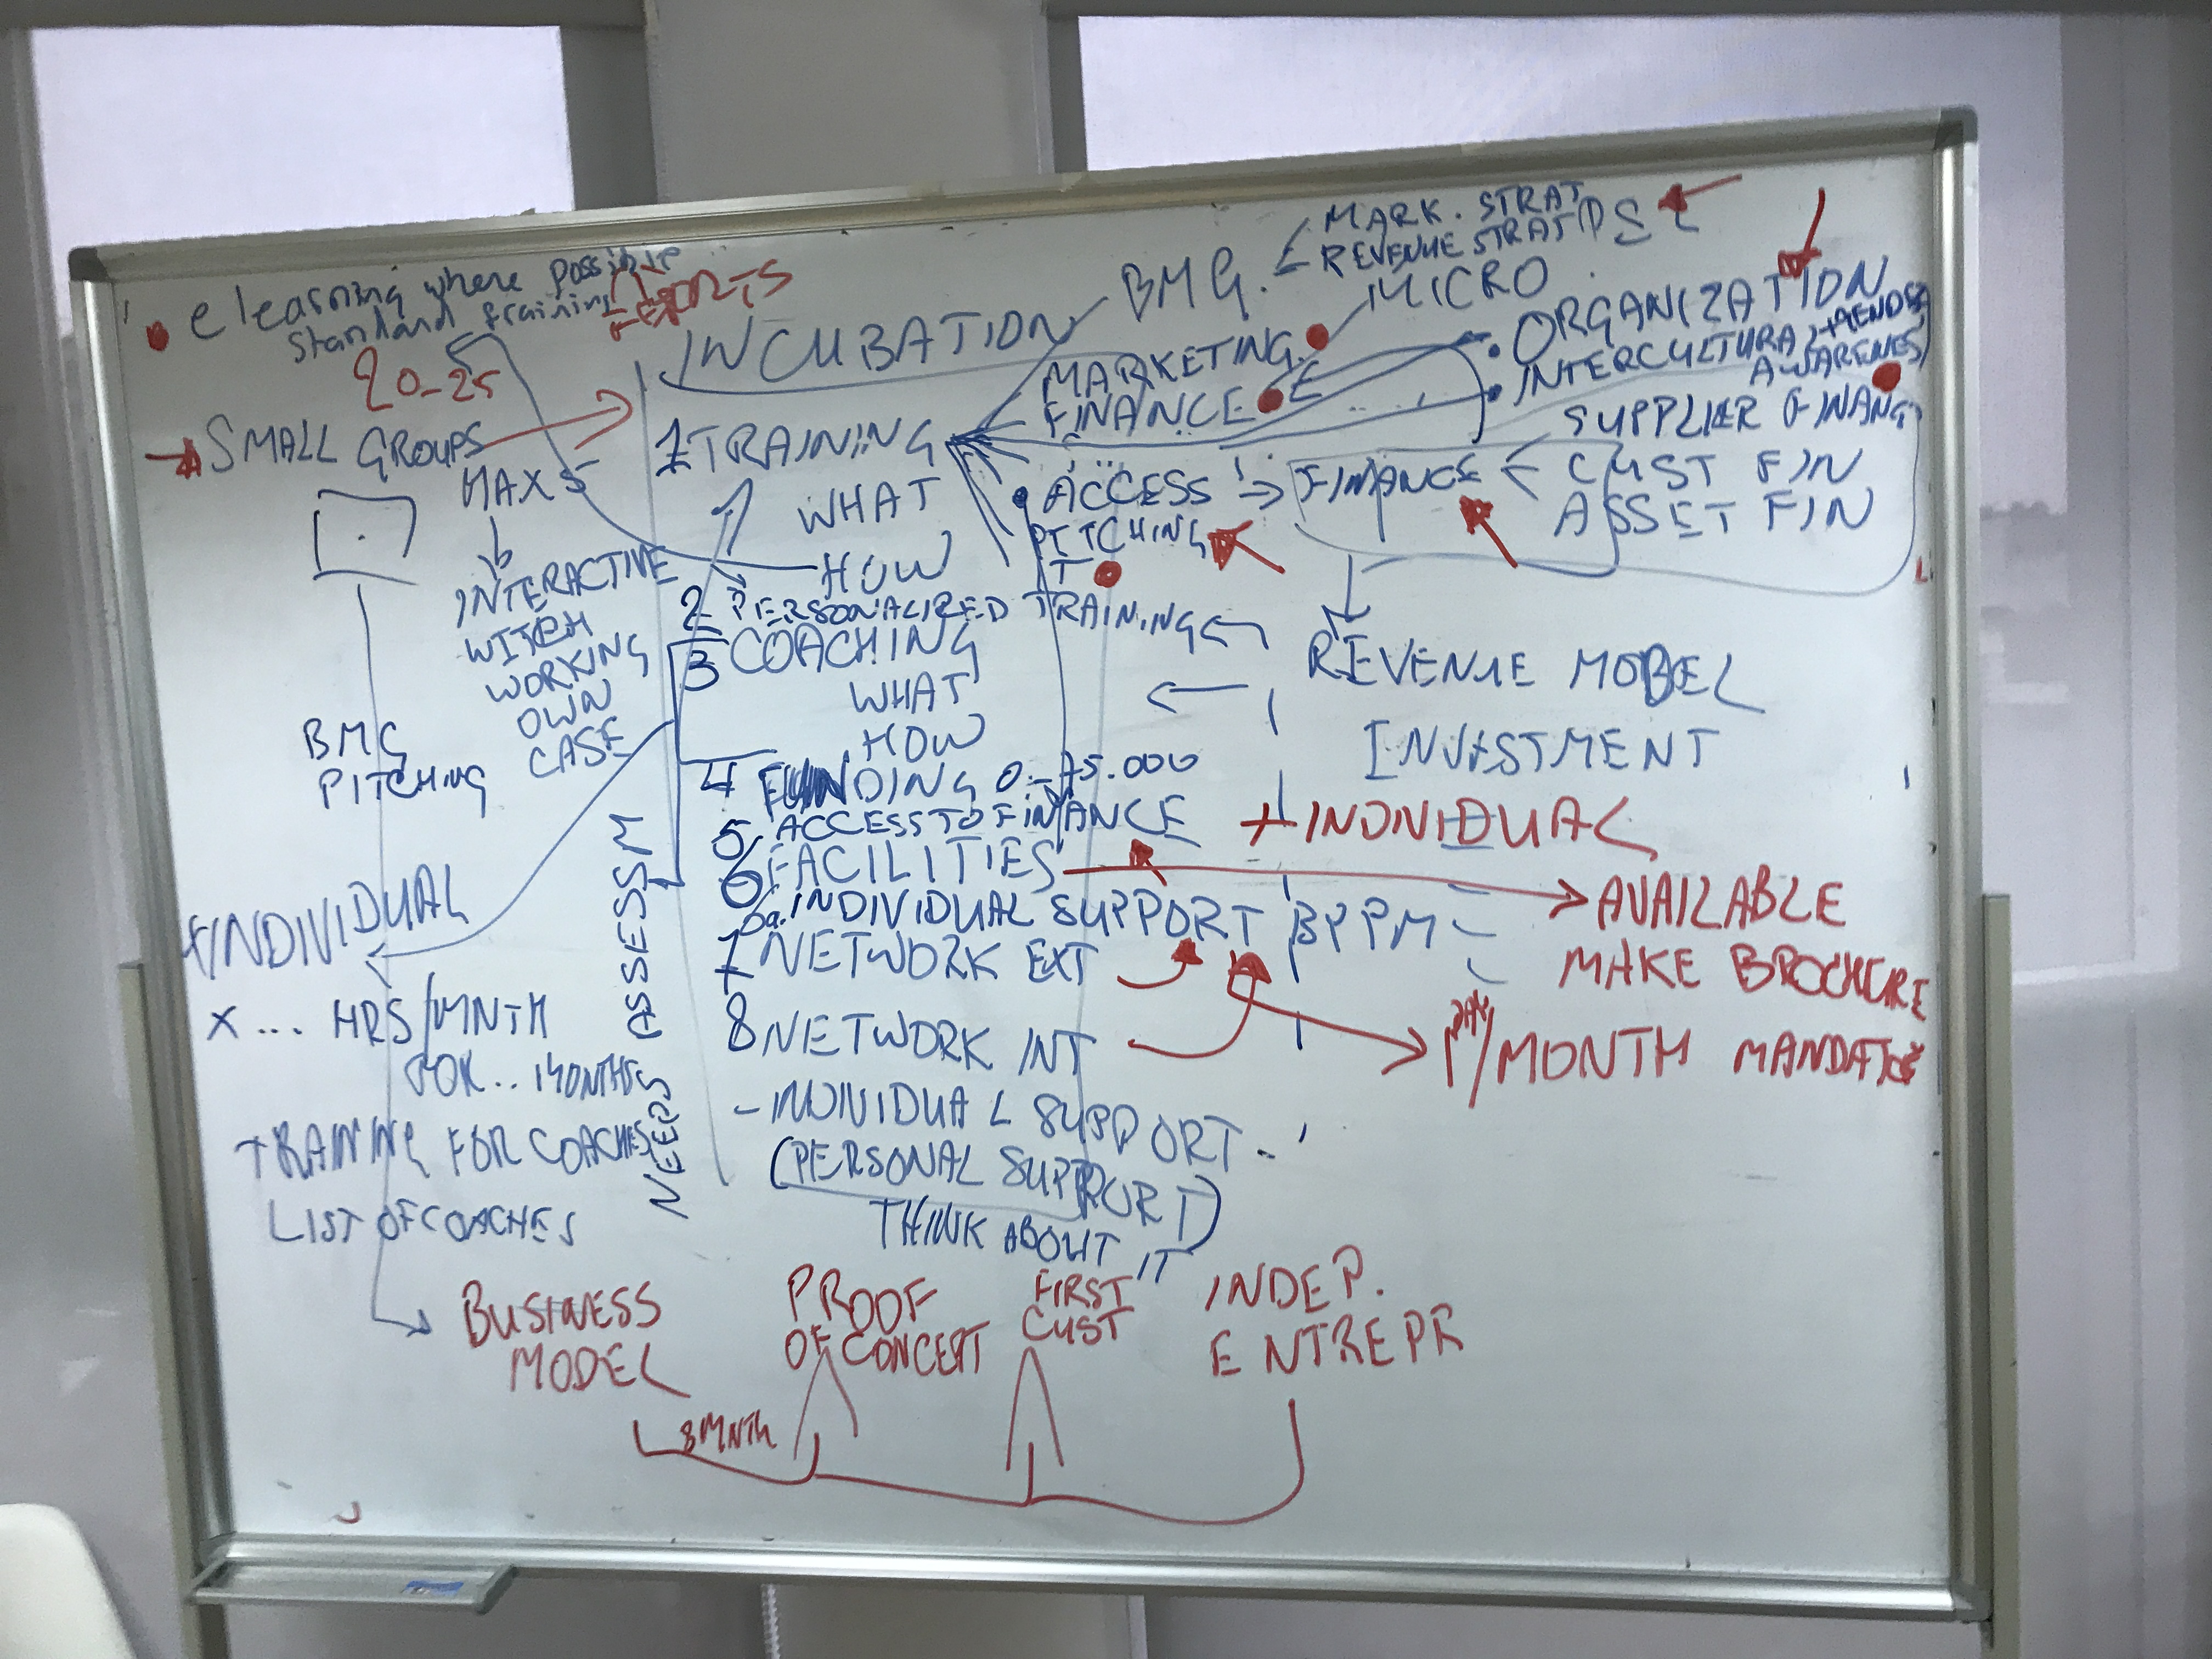 e learning where possible
standard training
20-25
SMALL GROUPS
MAX 5
INTERACTIVE
WITH
WORKING
OWN
CASE
BMC
PITCHING
+INDIVIDUAL
X ... HRS/MNTH
FOR .. MONTHS
TRAINING FOR COACHES
LIST OF COACHES
NEEDS ASSESSM
INCUBATION
1 TRAINING
WHAT
HOW
2 PERSONALIZED TRAINING
3 COACHING
WHAT
HOW
4 FUNDING 0-75.000
5 ACCESS TO FINANCE
6 FACILITIES
6a. INDIVIDUAL SUPPORT BY PM
7 NETWORK EXT
8 NETWORK INT
- INDIVIDUAL SUPPORT
(PERSONAL SUPPORT)
THINK ABOUT IT
BMG.
MARK. STRAT
REVENUE STRAT
MICRO
MARKETING
FINANCE
• ORGANIZATION
• INTERCULTURAL + GENDER
AWARENES
ACCESS
FINANCE
SUPPLIER FINANC
CUST FIN
ASSET FIN
PITCHING
IT
REVENUE MODEL
INVESTMENT
+ INDIVIDUAL
AVAILABLE
MAKE BROCHURE
/MONTH MANDATO
BUSINESS
MODEL
PROOF
OF CONCEPT
FIRST
CUST
INDEP.
ENTREPR
8 MNTH